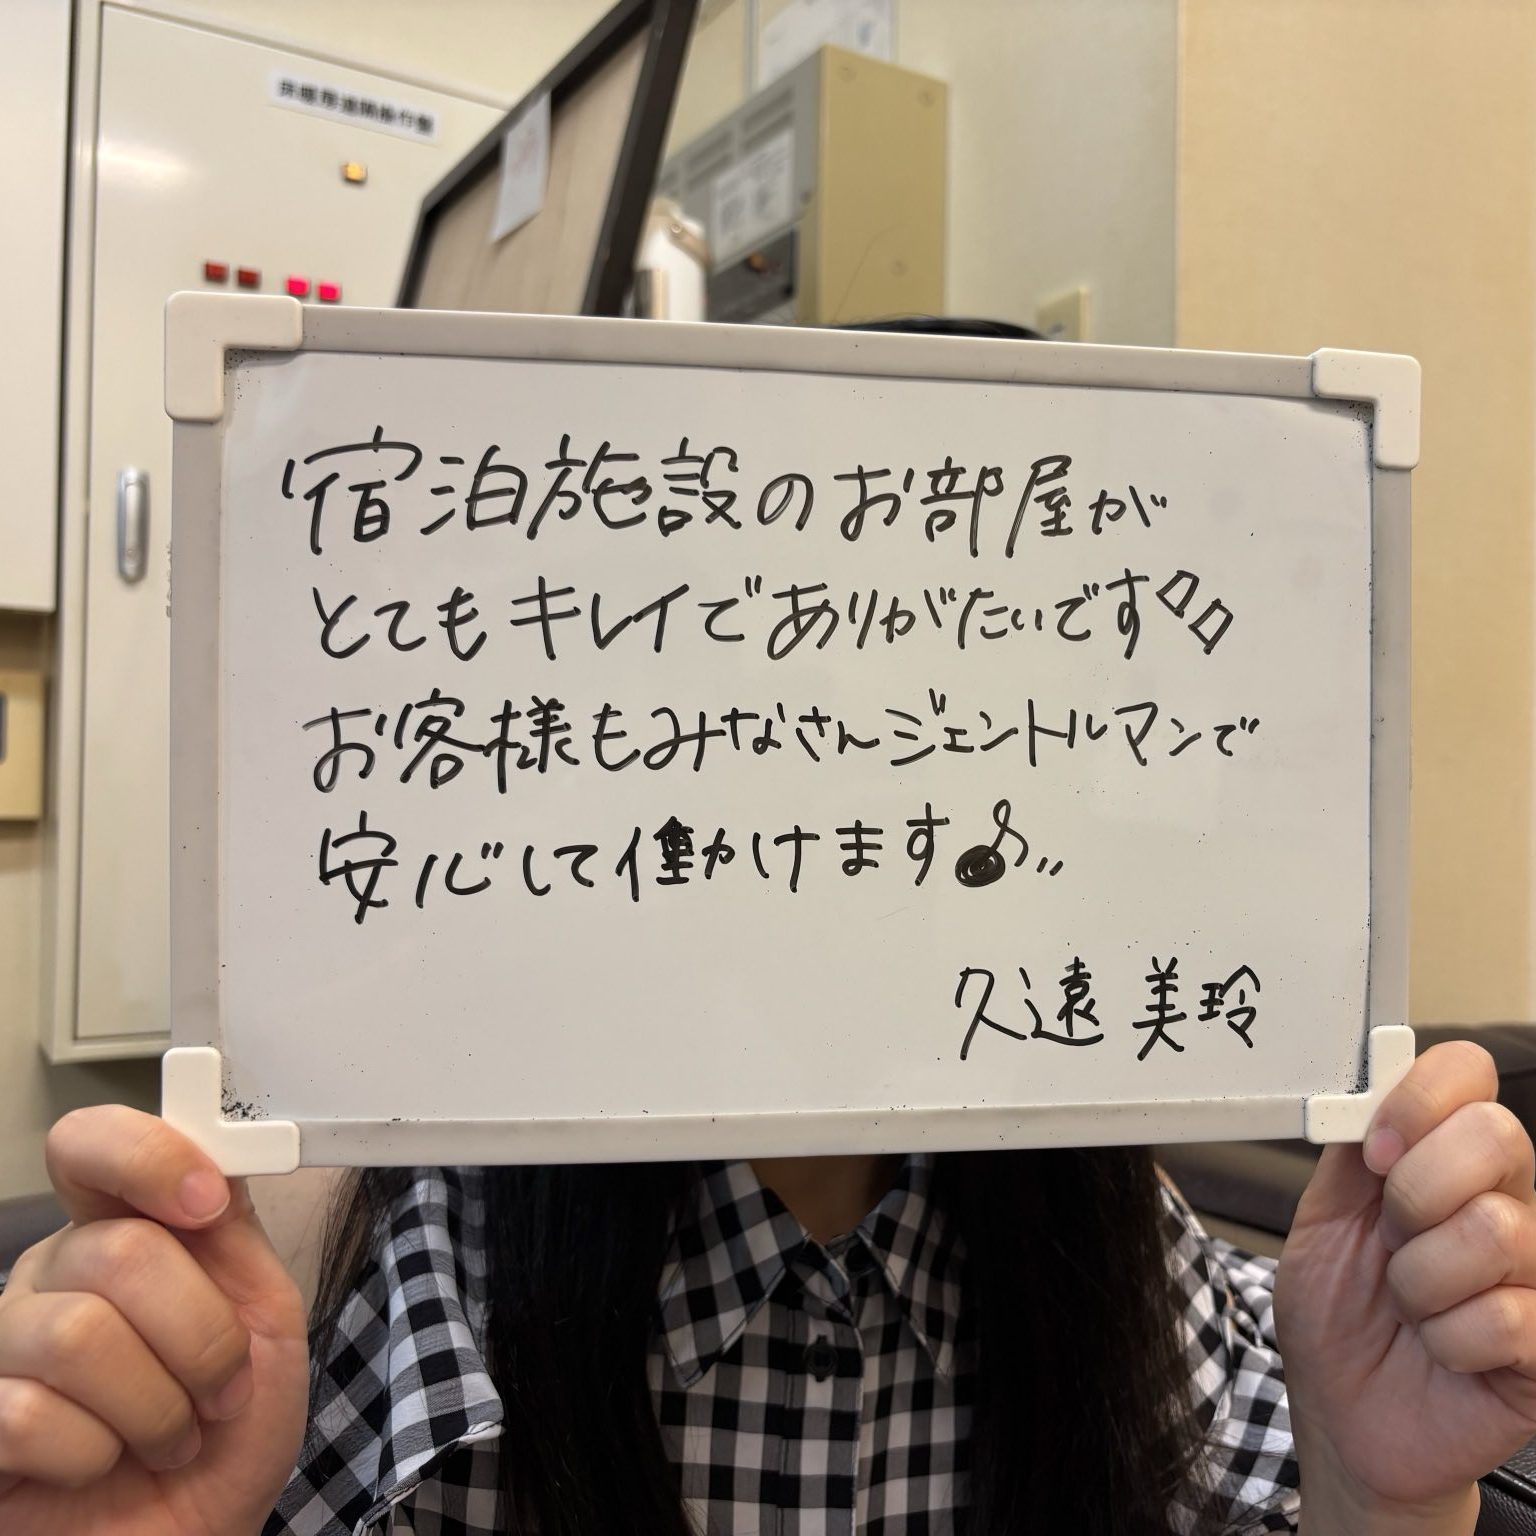 宿泊施設のお部屋が
とてもキレイでありがたいです
お客様もみなさんジェントルマンで
安心して働けます♪
久遠 美玲